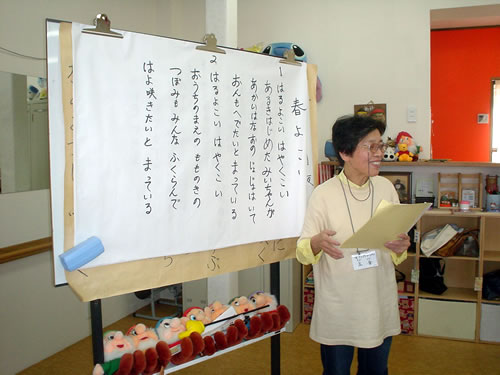 春よこい
1 はるよこい はやくこい
あるきはじめた みいちゃんが
あかいはなおの じょじょはいて
おんもへでたいと まっている
2 はるよこい はやくこい
おうちのまえの もものきの
つぼみもみんな ふくらんで
はよ咲きたいと まっている